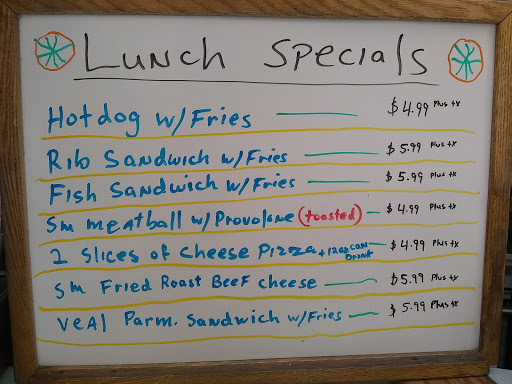 Lunch Specials
Hotdog w/Fries — $4.99 Plus tx
Rib Sandwich w/Fries — $5.99 Plus tx
Fish Sandwich w/Fries — $5.99 Plus tx
Sm meatball w/Provolone (toasted) — $4.99 Plus tx
2 Slices of Cheese Pizza + 12oz can Drink — $4.99 Plus tx
Sm Fried Roast Beef cheese — $5.99 Plus tx
Veal Parm. Sandwich w/Fries — $5.99 Plus tx